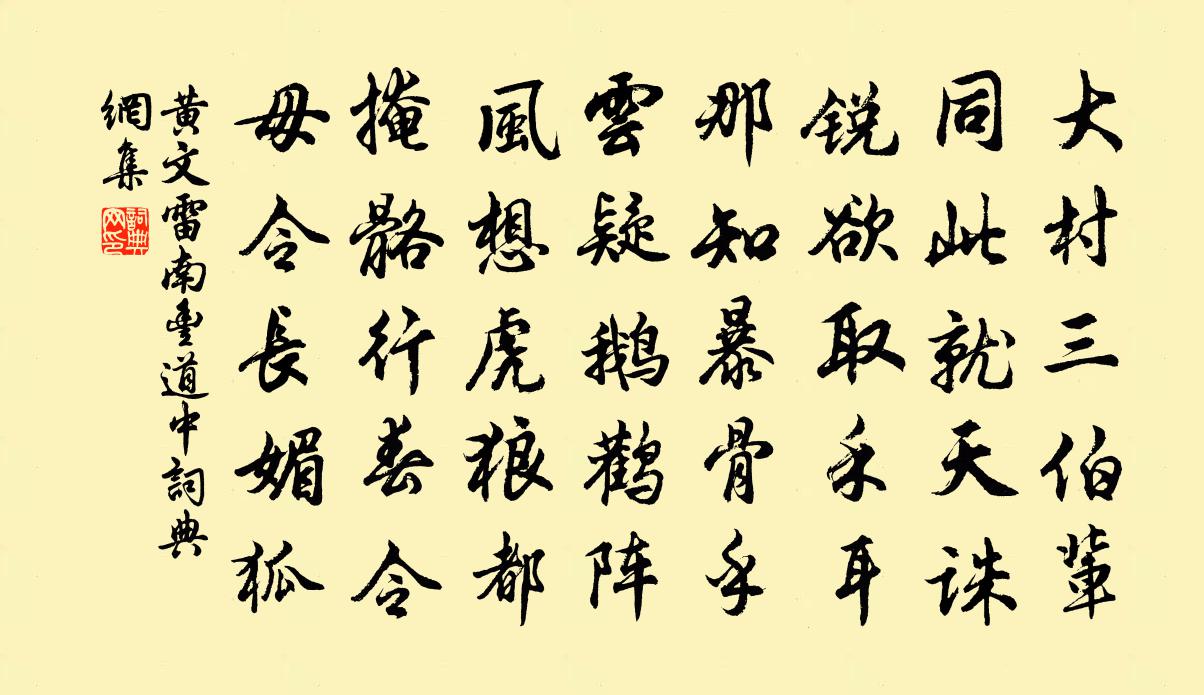 大村三伯輩
同此就天誅
锐欲取禾耳
那知暴骨乎
雲疑鹅鹳阵
風想虎狼都
掩骼行春令
毋令長媚狐
黄文雷南豊道中詞典
網集
詞典
网印